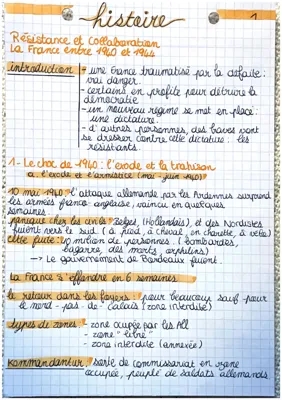 histoire
1
Résistance et Collaboration
La France entre 1940 et 1944
introduction
- une France traumatisée par la défaite :
vrai danger.
- certains en profite pour détruire la
démocratie
- un nouveau régime se met en place :
une dictature.
- d'autres personnes, des baves vont
se dresser contre cette dictature : les
résistants.
1 - Le choc de 1940 : l'exode et la trahison
a. l'exode et l'armistice (mai - juin 1940)
10 mai 1940 : l'attaque allemande par les Ardennes surprend
les armées franco-anglaise ; vaincu en quelques
semaines
panique chez les civils : Belges, (Hollandais), et des Nordistes
fuient vers le sud. (à pied, à cheval, en charette, à vélo)
cette fuite : 10 million de personnes. (bombardés,
bagarre, des morts, orphelins)
→ Le gouvernement de Bordeaux fuient.
La France s'effondre en 6 semaines
le retour dans les foyers : pour beaucoup sauf pour
le nord - pas - de - calais (zone interdite)
types de zones : - zone ocupée par les All
- zone "libre"
- zone interdite (annexée)
Kommandantur : sorte de commissariat en zone
occupée, peuplé de soldats allemands